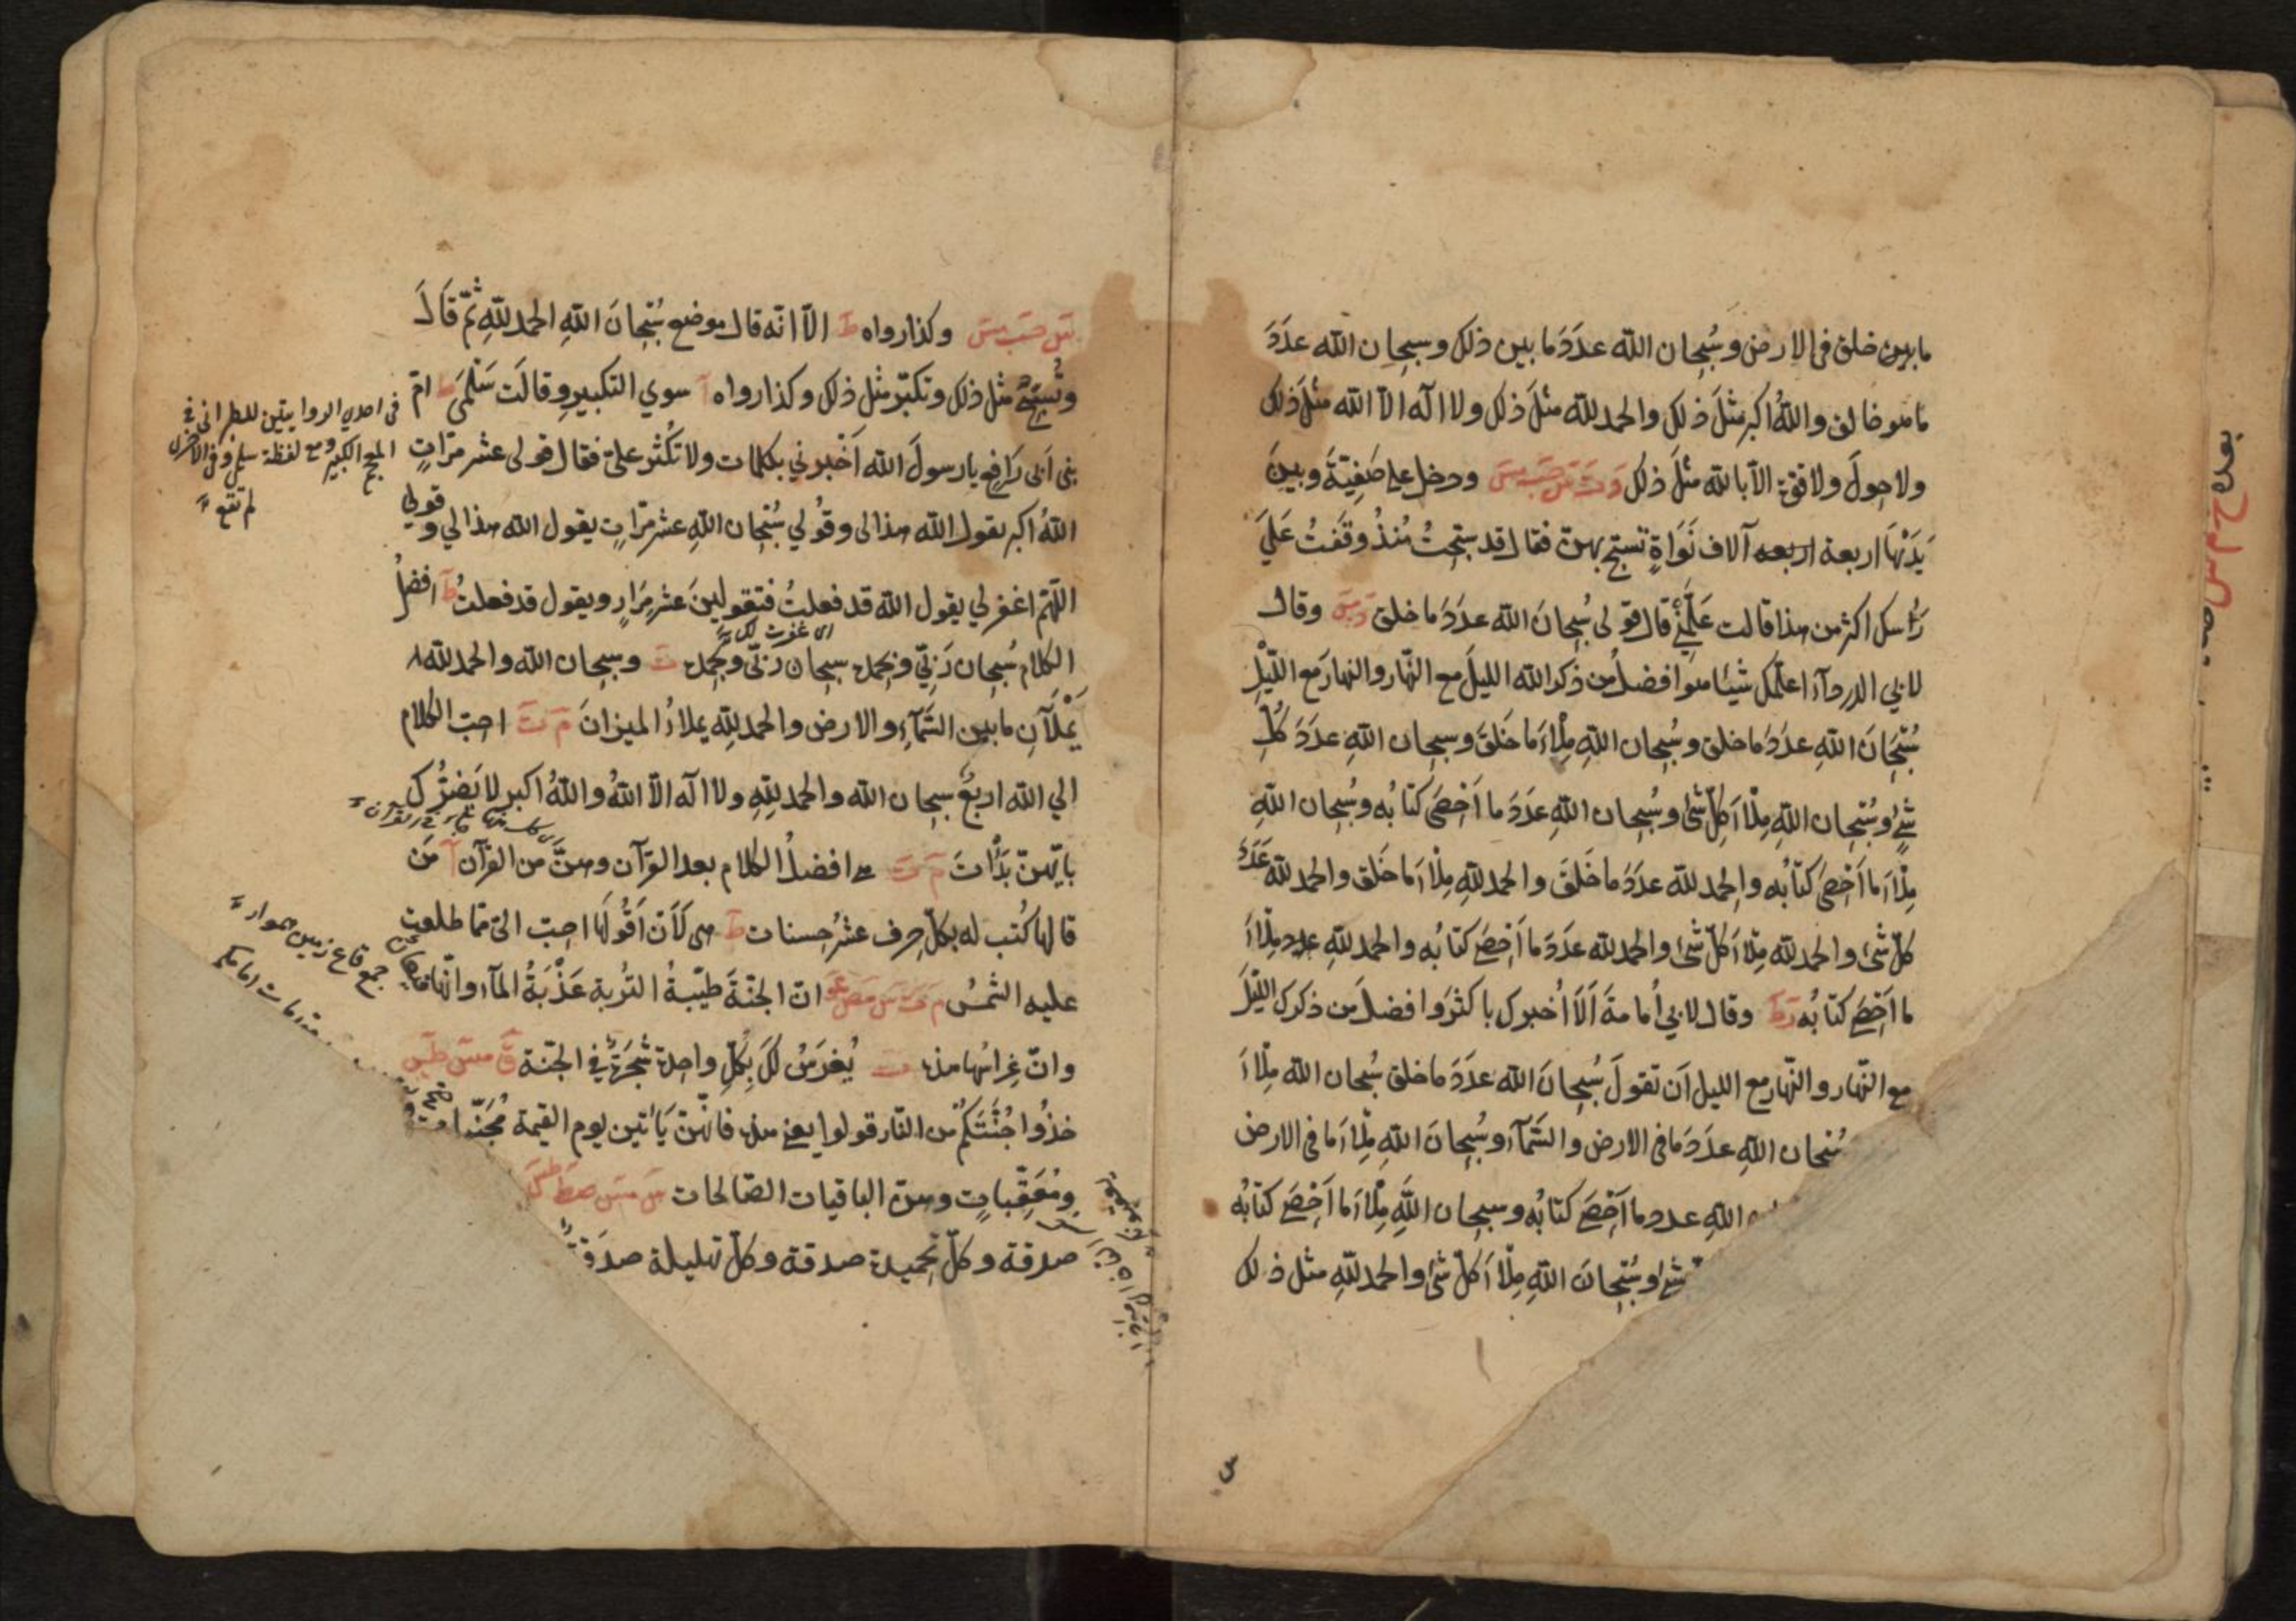 ما بين خلق في الارض وسُبحان الله عدَدَ ما بين ذلك وسبحان الله عدَدَ
ما هو خالق واللهُ اكبر مثلَ ذلك والحمد لله مثلَ ذلك ولا اله الا الله مثلَ ذلك
ولا حولَ ولا قوة الا بالله مثلَ ذلك دَ تَ سَ حَبَ مسَ ودخل على صَفِيّةَ وبينَ
يَدَيْهَا اربعة اربعه آلاف نَوَاةٍ تسبّح بهنّ فقال قد سبّحتُ مُنذُ وقَفتُ عَلَيَ
رَأسك اكثر من هذا قالت عَلِّمْنِي قال قولى سُبحانَ الله عدَدَ ما خلق دَ مسَ وقال
لابي الدرداء اعلّمك شيئا هوَ افضلُ من ذكر الله الليلَ مع النّهار والنهارَ مع اللّيْلِ
سُبْحَانَ اللهِ عدَدَ ما خلق وسُبحان اللهِ مِلْأَ ما خَلقَ وسبحان اللهِ عدَدَ كُلِّ
شئٍ وسُبْحان اللهِ مِلْأَ كلّ شئ وسُبحان اللهِ عدَدَ ما اَحْصَى كتابُه وسُبحان اللهِ
مِلْأَ ما اَحْصَى كتابُه والحمد لله عدَدَ ما خَلقَ والحمد للهِ مِلْأَ ما خَلق والحمد لله عدَدَ
كلّ شئ والحمد للهِ مِلْأَ كلّ شئ والحمد لله عدَدَ ما اَحْصَى كتابُه والحمد للهِ عدد مِلْأَ
ما اَحْصَى كتابُه رَ طَ وقال لابي اُمامةَ اَلَا اُخبرك باكثرَ وافضلَ من ذكرك اللّيْلَ
مع النّهار والنّهار مع الليل اَن تقولَ سُبحانَ الله عدَدَ ما خلق سُبحان الله مِلْأَ
سُبحان اللهِ عدَدَ ما في الارض والسّمآء وسُبحانَ اللهِ مِلْأَ ما في الارض
اللهِ عدد ما اَحْصَى كتابُه وسبحان اللهِ مِلْأَ ما اَحْصَى كتابُه
شئ وسُبْحانَ اللهِ مِلْأَ كلّ شئ والحمد للهِ مثل ذلك
سَ حَبَ مسَ وكذا رواه طَ الّا انّه قال موضع سُبْحانَ اللهِ الحمد للهِ ثمّ قَالَ
وتُسبّحُ مثل ذلك وتكبّر مثل ذلك وكذا رواه آ سوي التكبير وقالَت سَلْمَى طَ امّ
بنى اَبى رَافِع يا رسولَ الله اَخبرني بكلمات ولا تُكثر عليّ فقال قولى عشر مرّاتٍ
اللهُ اكبر يقول الله هذا لى وقُولي سُبْحان اللهِ عشر مرّاتٍ يقول الله هذا لي وقولي
اللّهمّ اغفر لي يقول الله قد فعلتُ فتقولينَ عشر مِرَارٍ ويقول قد فعلتُ طَ افضلُ
اى غفرت لك
الكلام سُبحان رَبّي وبحمده سبحان ربّي وبحمده تَ وسبحان الله والحمد لله
يَمْلَآنِ ما بين السَّمآءِ والارض والحمد للهِ يملاءُ الميزانَ مَ تَ احبّ الكلام
الي الله اربعٌ سبحان الله والحمد للهِ ولا اله الّا اللهُ واللهُ اكبر لا يَضُرُّك
بايّهنّ بَدَأْتَ مَ تَ هي افضلُ الكلام بعد القرآن وهنّ من القرآن آ مَن
قالها كُتب له بكلّ حرف عشرُ حسنات طَ هى لَاَن اَقُولَها احبّ اليّ ممّا طلعت
عليه الشمسُ مَ تَ سَ مصَ عوَ انّ الجنّةَ طيّبةُ التُربة عَذْبَةُ المآء وانّها قيعان
وانّ غِراسُها هذه تَ يُغرَسُ لكَ بِكلّ واحدة شجَرَةٌ في الجنّة قَ مسَ طسَ
خذُوا جُنَّتَكُم من النّار قولوا يعني هذه فانّهنّ يَأتين يوم القيمة مُجَنِّبات
ومُعَقِّباتٍ وهنّ الباقيات الصّالحات سَ مسَ صطَ طسَ
صدقة وكلّ تحميدة صدقة وكلّ تهليلة صدَقةٌ
فى احدى الروايتين للطبرانى فى
المعجم الكبير ومع لفظة سلمى وفى الاخرى
لم تقع
جمع قاع زمين هموار